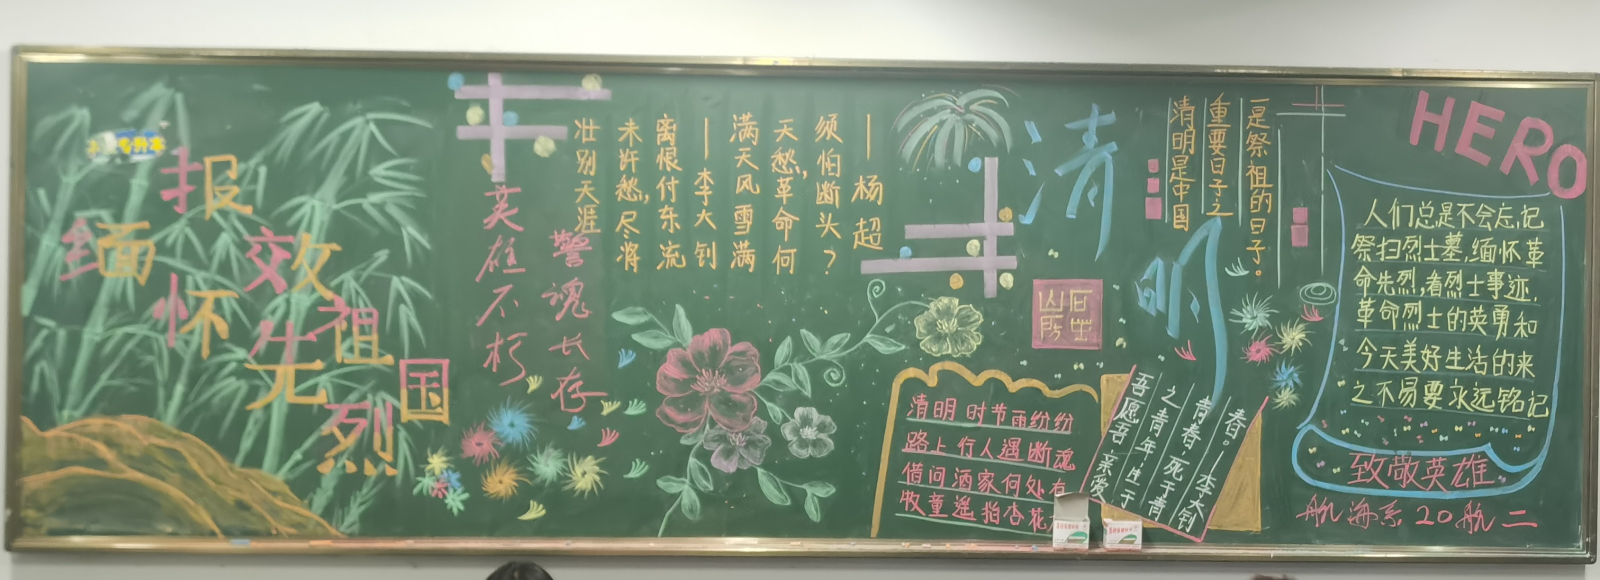 专升本
缅怀先烈
报效祖国
英雄不朽
警魂长存
壮别天涯
未许愁,尽将
离恨付东流
—李大钊
满天风雪满
天愁,革命何
须怕断头?
—杨超
清明
清明是中国
重要日子之
一是祭祖的日子。
清明时节雨纷纷
路上行人遇断魂
借问酒家何处有
牧童遥指杏花
吾愿吾亲爱
之青年,生于
青春,死于青
春。—李大钊
HERO
人们总是不会忘记
祭扫烈士墓,缅怀革
命先烈,看烈士事迹,
革命烈士的英勇和
今天美好生活的来
之不易要永远铭记
致敬英雄
航海系20航二